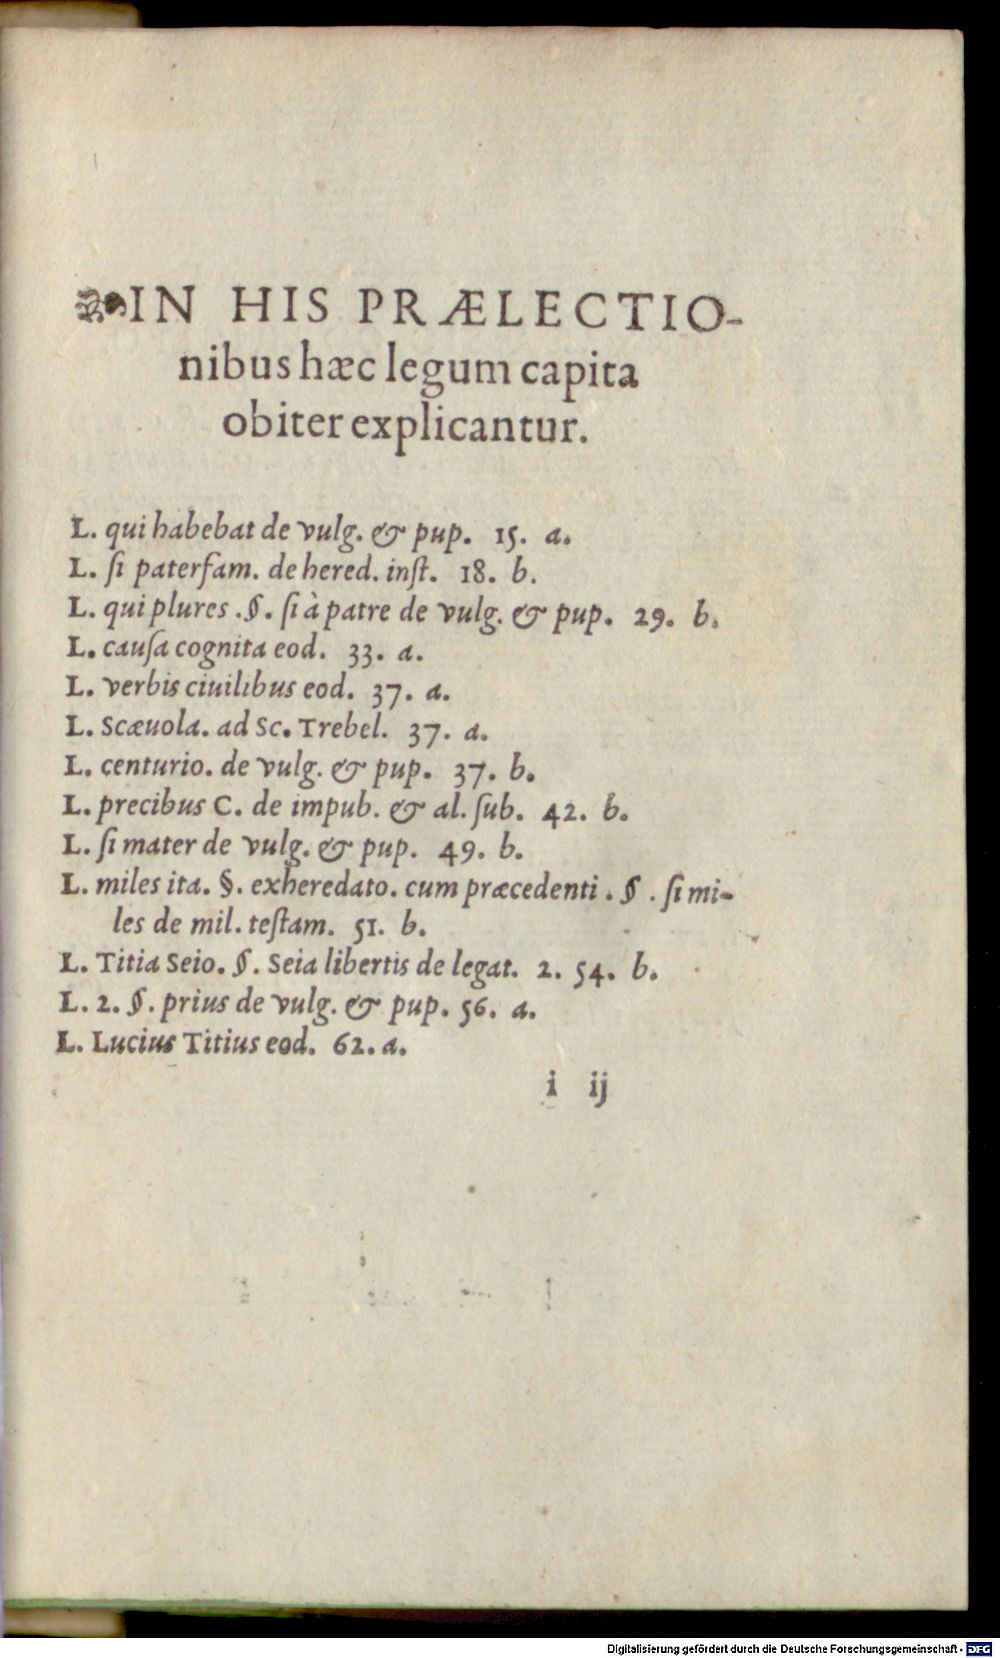 ❧IN HIS PRÆLECTIO-
nibus hæc legum capita
obiter explicantur.
L. qui habebat de vulg. & pup. 15. a.
L. ſi paterfam. de hered. inſt. 18. b.
L. qui plures .§. ſi à patre de vulg. & pup. 29. b.
L. cauſa cognita eod. 33. a.
L. verbis ciuilibus eod. 37. a.
L. Scæuola. ad Sc. Trebel. 37. a.
L. centurio. de vulg. & pup. 37. b.
L. precibus C. de impub. & al. ſub. 42. b.
L. ſi mater de vulg. & pup. 49. b.
L. miles ita. §. exheredato. cum præcedenti . § . ſi mi-
les de mil. teſtam. 51. b.
L. Titia Seio. §. Seia libertis de legat. 2. 54. b.
L. 2. §. prius de vulg. & pup. 56. a.
L. Lucius Titius eod. 62. a.
i ij
Digitalisierung gefördert durch die Deutsche Forschungsgemeinschaft - DFG